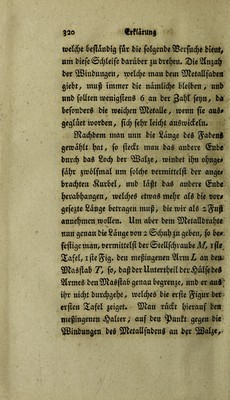 320 Erklärung
welche beständig für die folgende Versuche dient,
um diese Schleife darüber zu drehen. Die Anzahl
der Windungen, welche man dem Metallfaden
giebt, muß immer die nämliche bleiben, und
und sollten wenigstens 6 an der Zahl seyn, da
besonders die weichen Metalle, wenn sie aus-
geglüet worden, sich sehr leicht auswickeln.
Nachdem man nun die Länge des Fadens
gewählt hat, so steckt man das andere Ende
durch das Loch der Walze, windet ihn ohnge-
fähr zwölfmal um solche vermittelst der ange-
brachten Kurbel, und läßt das andere Ende
herabhangen, welches etwas mehr als die vor-
gesezte Länge betragen muß, die wir als 2 Fuß
annehmen wollen. Um aber dem Metalldrahte
nun genau die Länge von 2 Schuh zu geben, so be-
festige man, vermittelst der Stellschraube M, 1ste
Tafel, 1ste Fig. den meßingenen Arm L an den
Masstab T, so, daß der Untertheil der Hülse des
Armes den Masstab genau begrenze, und er aus
ihr nicht durchgehe, welches die erste Figur der
ersten Tafel zeiget. Man rückt hierauf den
meßingenen Halter, auf den Punkt gegen die
Windungen des Metallfadens an der Walze,